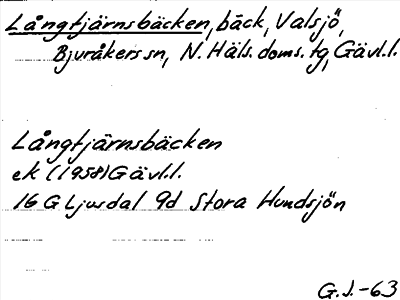 Långtjärnsbäcken, bäck, Valsjö,
Bjuråkers sn, N. Häls. doms. tg, Gävl.l.
Långtjärnsbäcken
ek (1958) Gävl.l.
16 G Ljusdal 9d Stora Hundsjön
G.J.-63